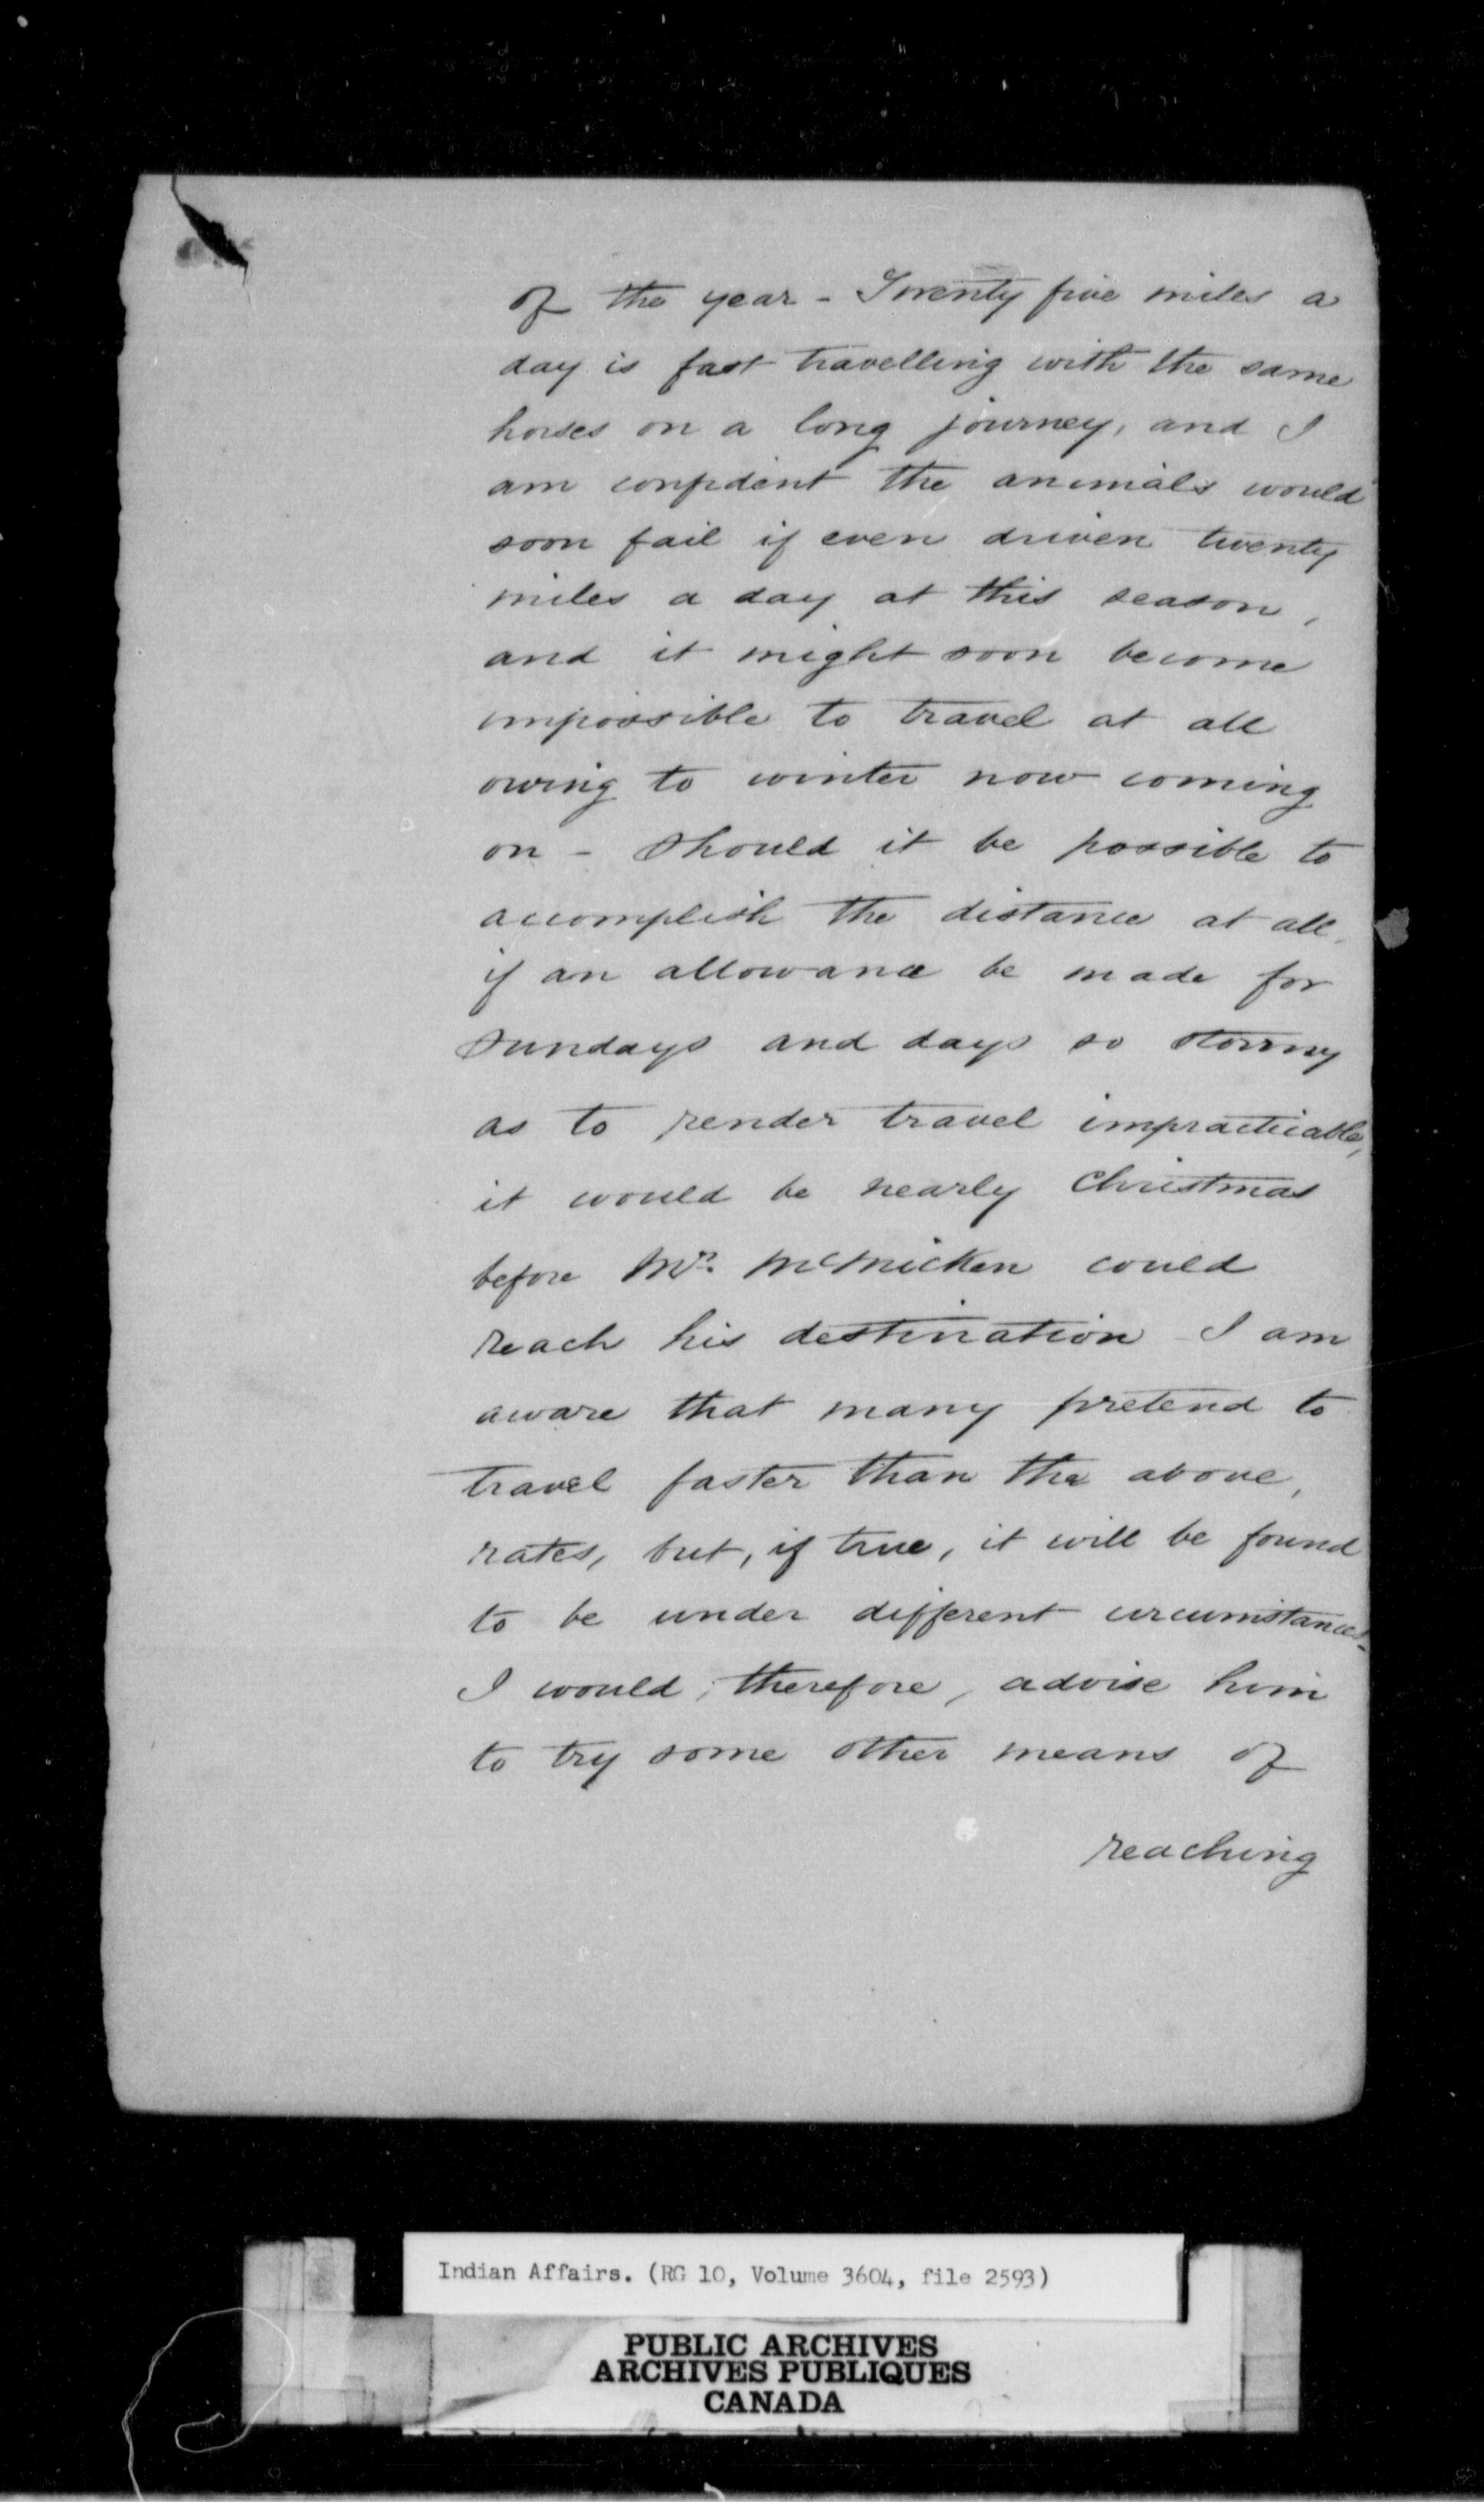 of the year - Twenty five miles a
day is fast travelling with the same
horses on a long journey, and I
am confident the animals would
soon fail if even driven twenty
miles a day at this season,
and it might soon become
impossible to travel at all
owing to winter now coming
on - Should it be possible to
accomplish the distance at all,
if an allowance be made for
Sundays and days so stormy
as to render travel impracticable,
it would be nearly Christmas
before Mr. McMicken could
reach his destination - I am
aware that many pretend to
travel faster than the above,
rates, but, if true, it will be found
to be under different circumstances-
I would, therefore, advise him
to try some other means of
reaching
Indian Affairs. (RG 10, Volume 3604, file 2593)
PUBLIC ARCHIVES
ARCHIVES PUBLIQUES
CANADA